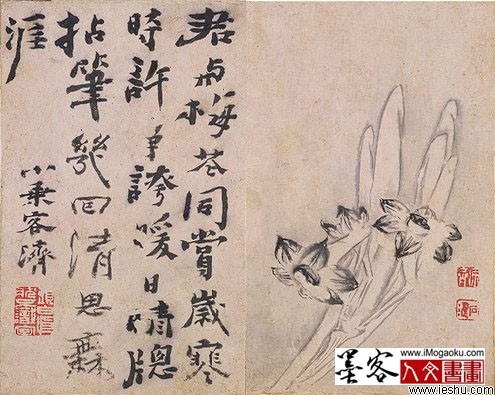 君与梅花同賞歲寒
時許爭誇暖日晴牕
拈筆幾回清思無
涯
小乘客濟
墨客
www.iMogaoku.com
人文書畫
www.ieshu.com